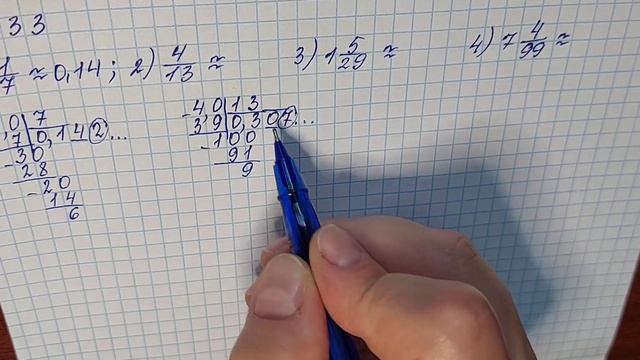 33
1/7 ≈ 0,14 ; 2) 4/13 ≈ 3) 1 5/29 ≈ 4) 7 4/99 ≈
,0 | 7
,7 | 0,142...
-30
28
-20
14
6
-4,0 | 13
3,9 | 0,307...
-100
91
9